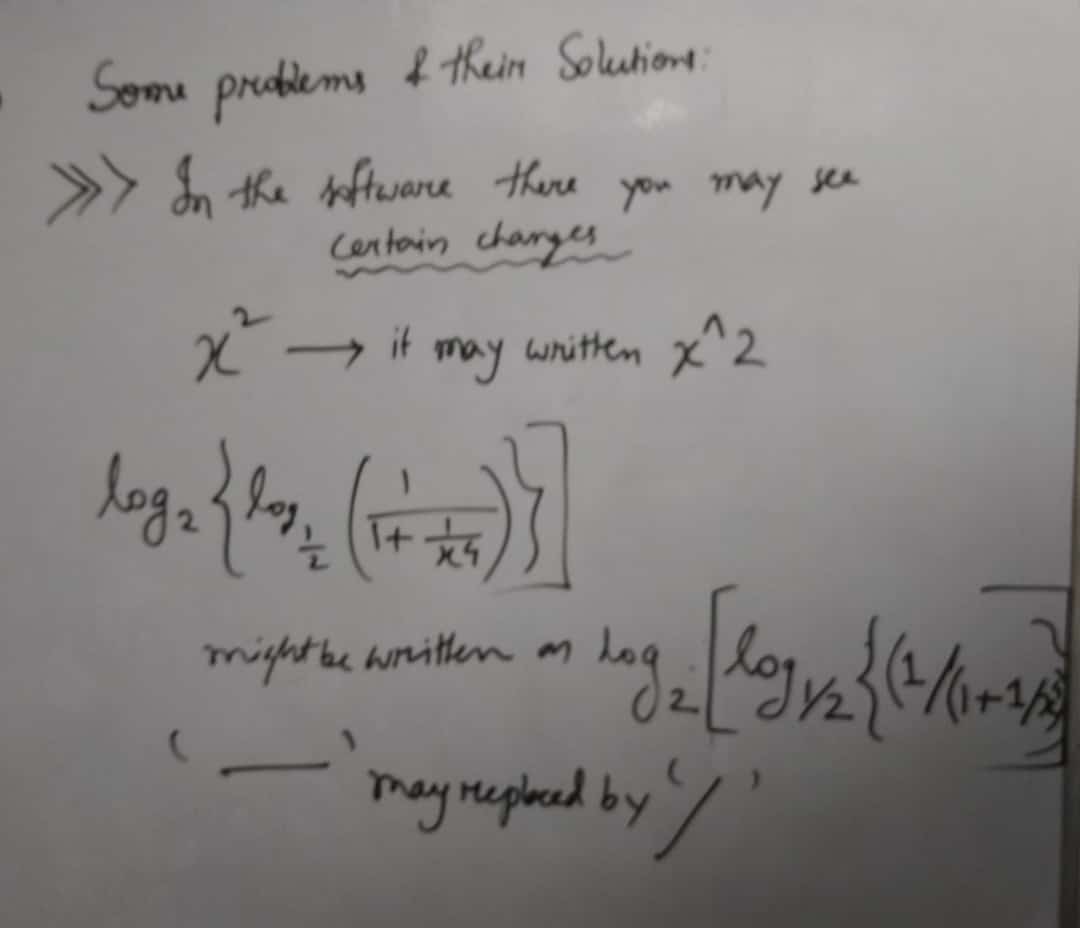 Some problems & their Solutions:
>>> In the software there you may see
certain changes
x² → it may written x^2
log₂ { log_{1/2} ( 1 / (1 + 1/x⁴) ) } ]
might be written as log₂ [ log_{1/2} { (1/(1+1/x
'—' may replaced by '/'